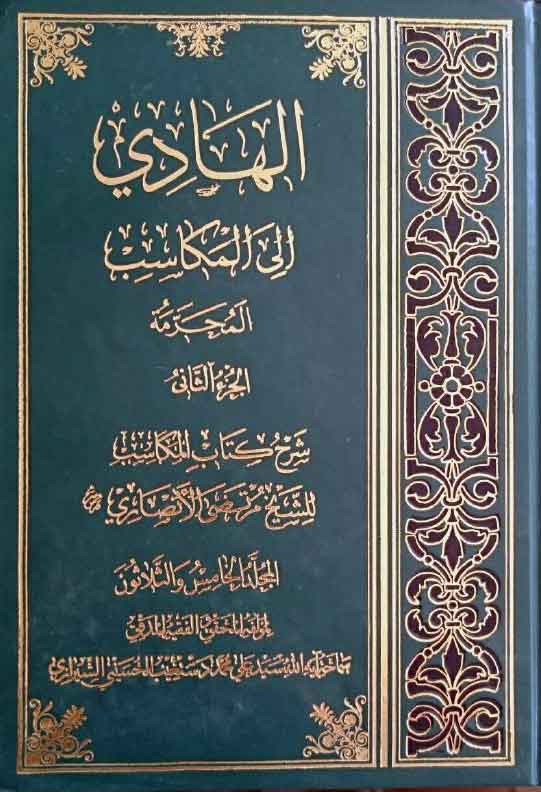 الهَادِي
اِلىَ المَكاسِبِ
المُحَرَّمَه
الجُزءُ الثَّانی
شَرْحُ كِتَابِ المَكَاسِبِ
لِلشَّيْخِ مُرْتَضَى الأَنْصَارِي
المُجَلَّدُ الخَامِسُ وَالثَّلاثُونَ
لِمؤلفه المحقق الفقيه المدقق
سماحة آية الله سيد علي محمد دستغيب الحسيني الشيرازي